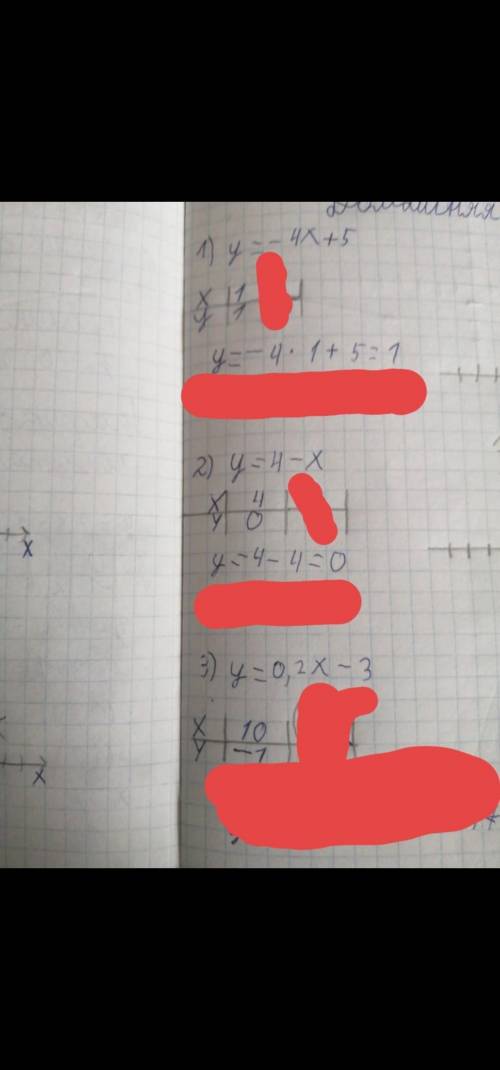 Домашняя
1) y = -4x+5
x | 1
y | 1
y = -4 · 1 + 5 = 1
2) y = 4 - x
x | 4
y | 0
y = 4 - 4 = 0
3) y = 0,2x - 3
x | 10
y | -1
x
x